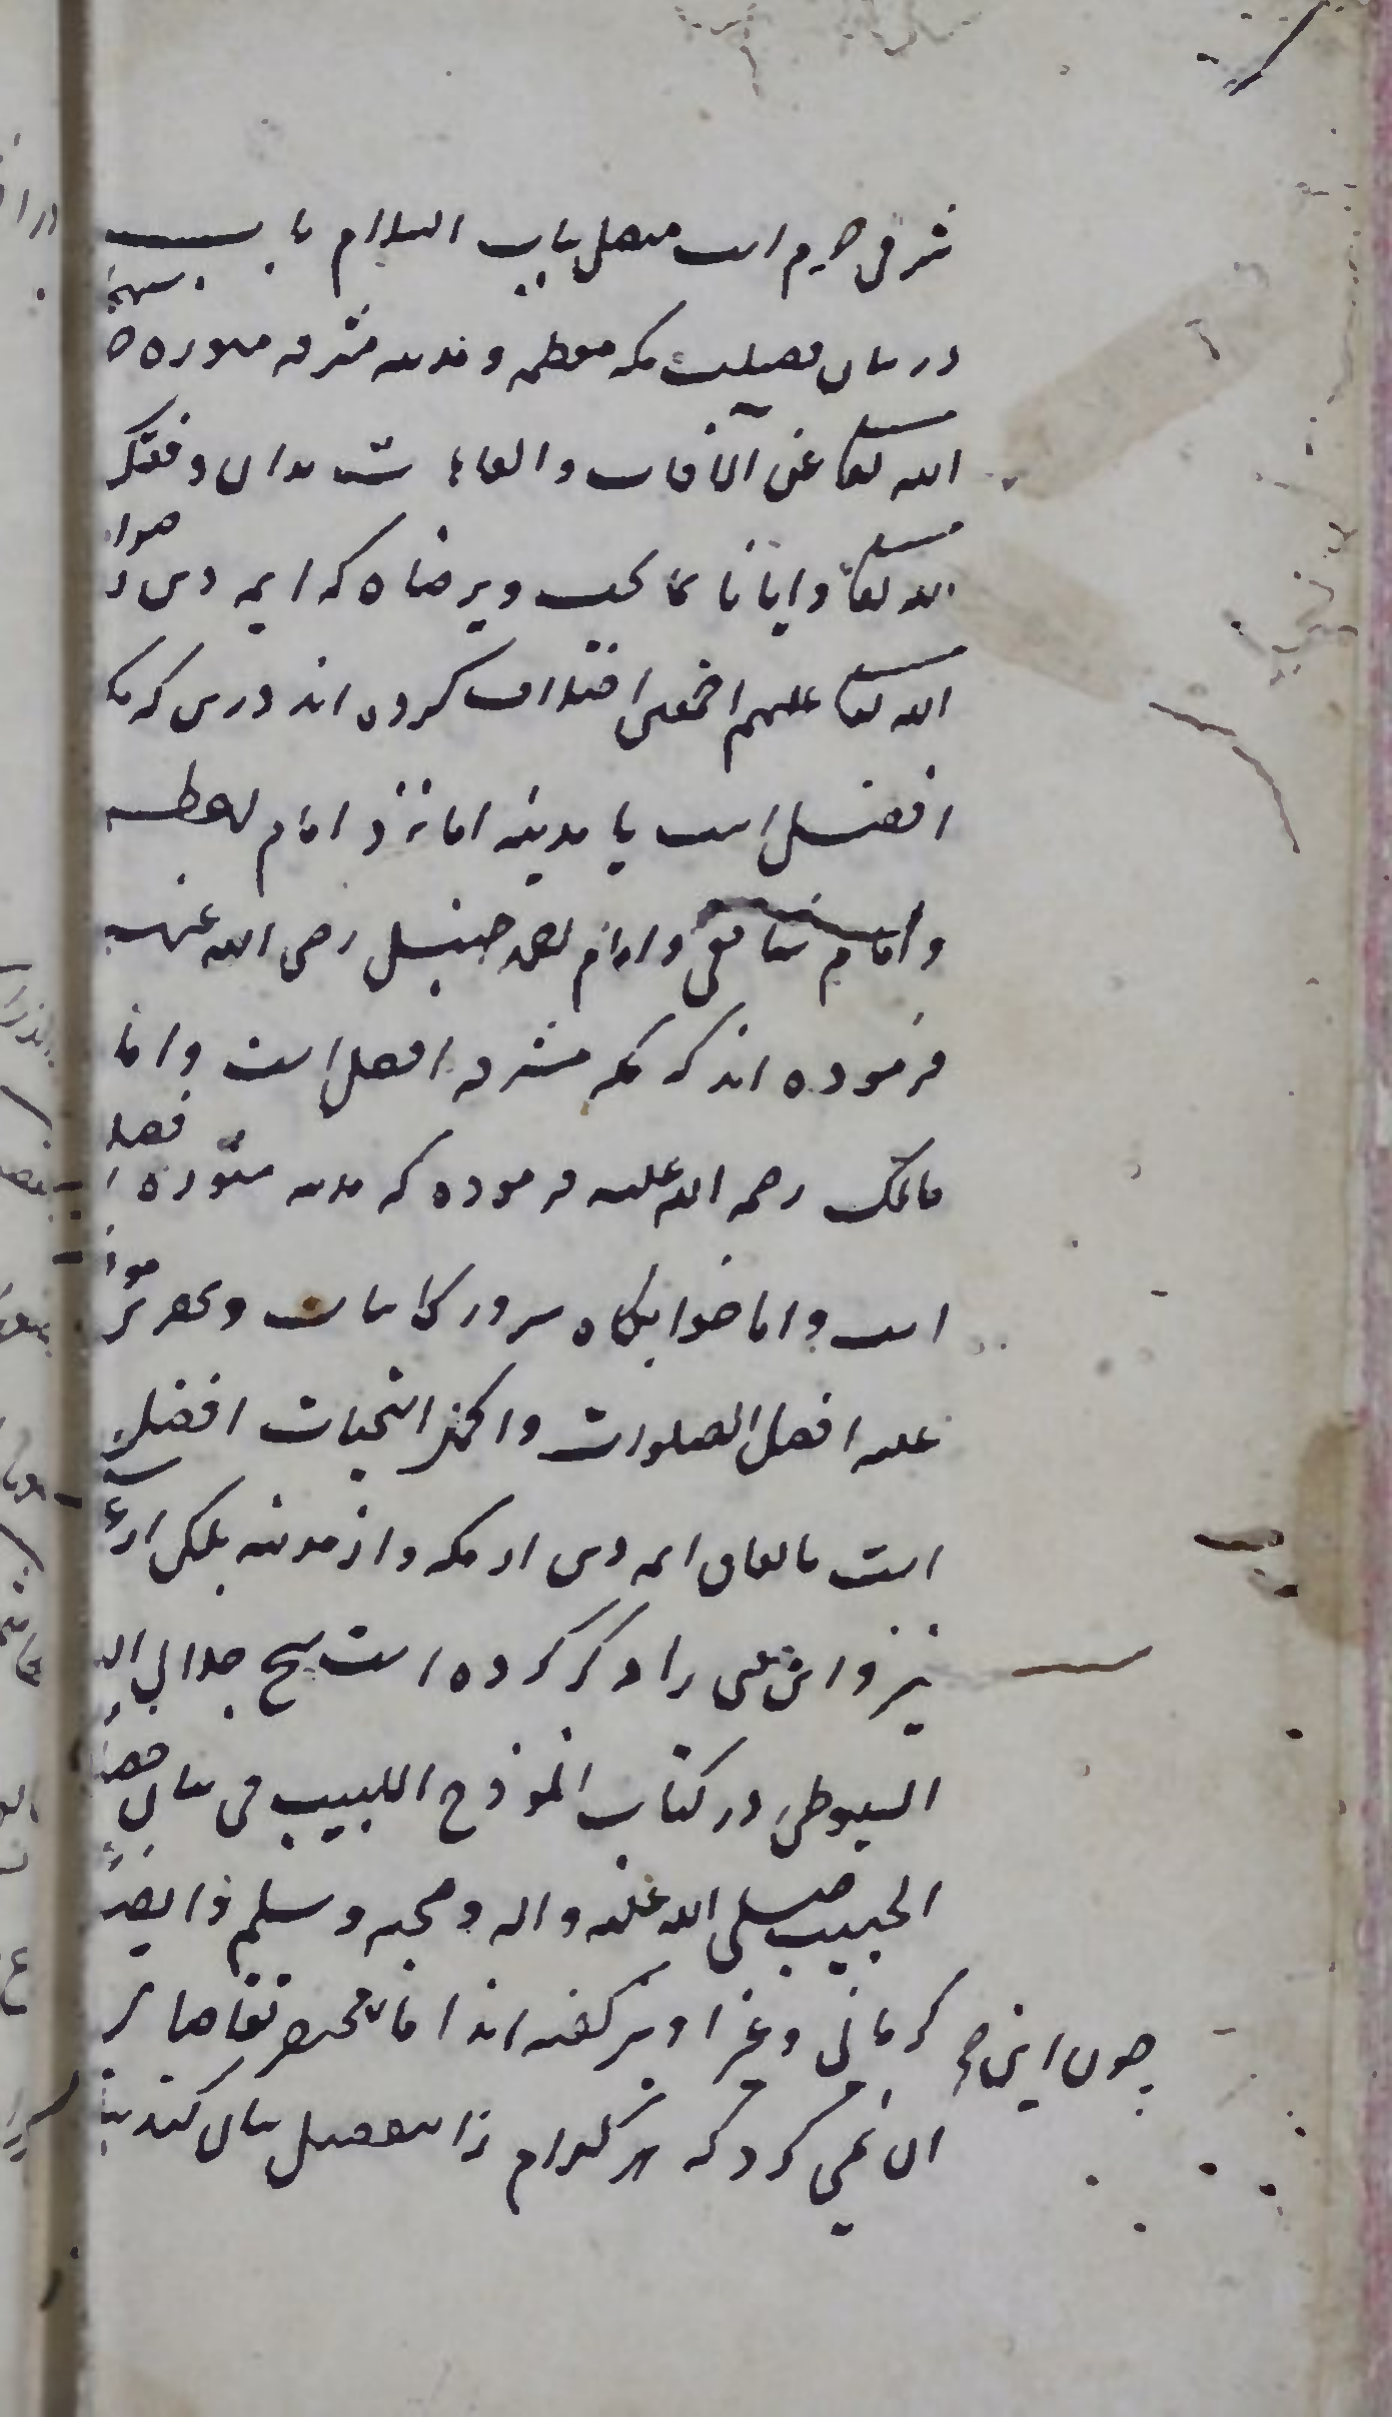 شرقی حرم است متصل بباب السلام باب سیوم
در بیان فضیلت مکه معظمه و مدینه مشرفه منوره صانهما
الله تعالی عن الآفات والعاهات بدان وفقک
الله تعالی وایانا بما یحب ویرضاه که ایمه دین رضوان
الله تعالی علیهم اجمعین اختلاف کرده اند درین که مکه
افضل است یا مدینه اما نزد امام اعظم
وامام شافعی وامام احمد حنبل رضی الله عنهم
فرموده اند که مکه مشرفه افضل است واما
مالک رحمه الله علیه فرموده که مدینه منوره افضل
است واما خوابگاه سرور کاینات ومفخر موجودات
علیه افضل الصلوات واکمل التحیات افضل
است باتفاق ایمه دین از مکه واز مدینه بلکه از عرش
نیز واین معنی را ذکر کرده است شیخ جلال الدین
السیوطی در کتاب انموذج اللبیب فی بیان خصایص
الحبیب صلی الله علیه واله وصحبه وسلم وایضا
کرمانی وغیر او نیز گفته اند اما چون این مختصر تقاضای
آن نمی کرد که هر کدام را بتفصیل بیان کند